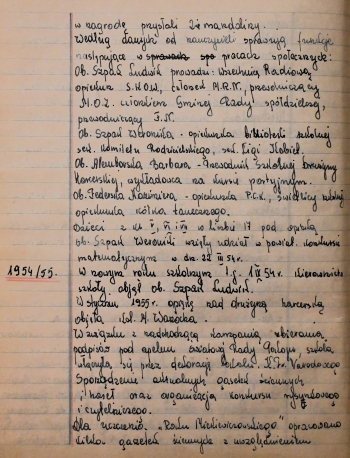 w nagrodę przysłali 2 mandoliny.
Według danych od nauczycieli sprawują funkcje
następujące w sprawach spo pracach społecznych:
Ob. Szpak Ludwik prowadzi: Wszechnicę Radiową
opiekun S.K.O.W., członek M.R.N., przewodniczący
członkiem Gminnej Rady spółdzielczej,
przewodniczący
Ob. Szpak Weronika - opiekunka biblioteki szkolnej
sek. Komitetu Rodzicielskiego, sek. Ligi Kobiet.
Ob. Barbara - Przewodnik Szkolnej Drużyny
Harcerskiej, wykładowca na kursie partyjnym.
Ob. Kazimiera - opiekunka P.C.K., świetlicy szkolnej
opiekunka kółka tanecznego.
Dzieci z kl. V, VI i VII w liczbie 17 pod opieką
ob. Szpak Weroniki wzięły udział w powiat. konkursie
matematycznym w dn. 22 III 54r.
1954/55. W nowym roku szkolnym t.j. 1 IX 54r. kierownictwo
szkoły objął ob. Szpak Ludwik.
W styczniu 1955r. opiekę nad drużyną harcerską
objęła kol. M.
W związku z nadchodzącą kampanią zbierania
podpisów pod apelem Światowej Rady Pokoju szkoła
włączyła się przez dekorację lokalu Narodowego
Sporządzenie aktualnych gazetek ściennych
i haseł oraz organizacja konkursu rysunkowego
i czytelniczego.
Dla uczczenia "Roku Mickiewiczowskiego" opracowano
kilka gazetek ściennych z uwzględnieniem